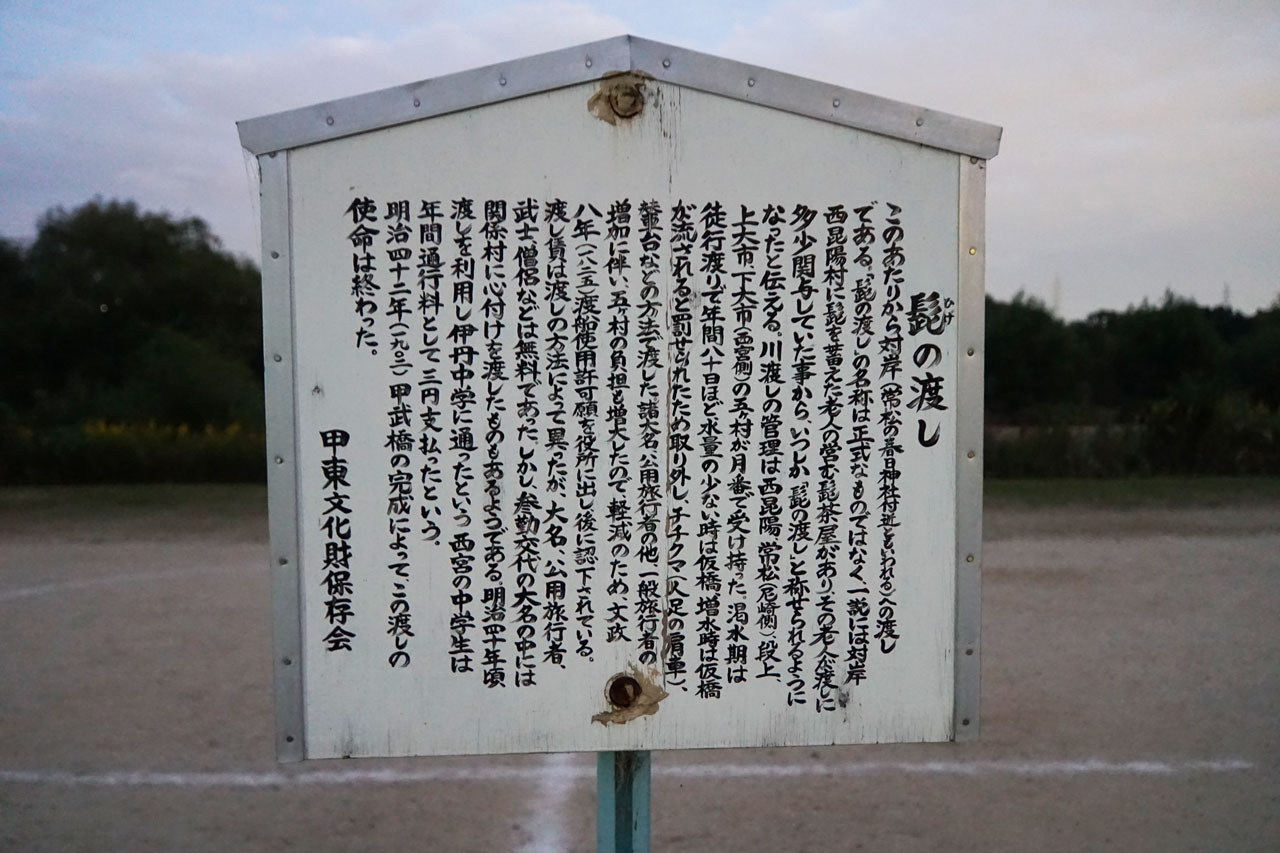 髭の渡し
ひげ
このあたりから対岸(常松の春日神社村辺ともいわれる)への渡し
である。「髭の渡し」の名称は正式なものではなく、一説には対岸
西昆陽村に髭を蓄えた老人の営む髭茶屋があり、その老人が渡しに
多少関与していた事から、いつしか「髭の渡し」と称せられるように
なったと伝える。川渡しの管理は西昆陽、常松(尼崎側)、段上、
上大市、下大市(西宮側)の五ヶ村が月番で受け持った。渇水期は
徒行渡りで年間八十日ほど水量の少ない時は仮橋、増水時は仮橋
が流されると罰せられたため取り外し、テテクマ(人足の肩車)、
輦台などの方法で渡した諸大名、公用旅行者の他、一般旅行者の
増加に伴い、五ヶ村の負担も増大したので、軽減のため、文政
八年(一八二五)渡船使用許可願を役所に出し後に認下されている。
渡し賃は渡しの方法によって異ったが、大名、公用旅行者、
武士、僧侶などは無料であった。しかし参勤交代の大名の中には
関係村に心付けを渡したものもあるようである。明治四十年頃
渡しを利用し伊丹中学に通ったという西宮の中学生は
年間通行料として三円支払ったという。
明治四十二年(一九〇二)甲武橋の完成によって、この渡しの
使命は終わった。
甲東文化財保存会